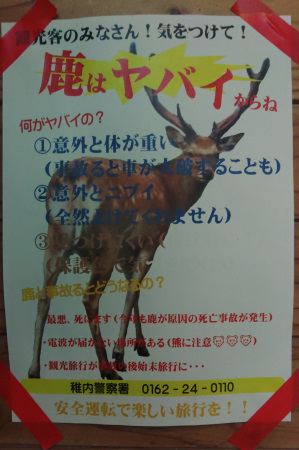 観光客のみなさん！気をつけて！
鹿はヤバイからね
何がヤバイの？
①意外と体が重い
(事故ると車が大破することも)
②意外とニブイ
(全然よけてくれません)
③見つけにくい(
(保護色で気づ
鹿と事故るとどうなるの？
・最悪、死にます(今年も鹿が原因の死亡事故が発生)
・電波が届かない場所がある(熊に注意
・観光旅行が事故の後始末旅行に・・・
稚内警察署 0162-24-0110
安全運転で楽しい旅行を！！